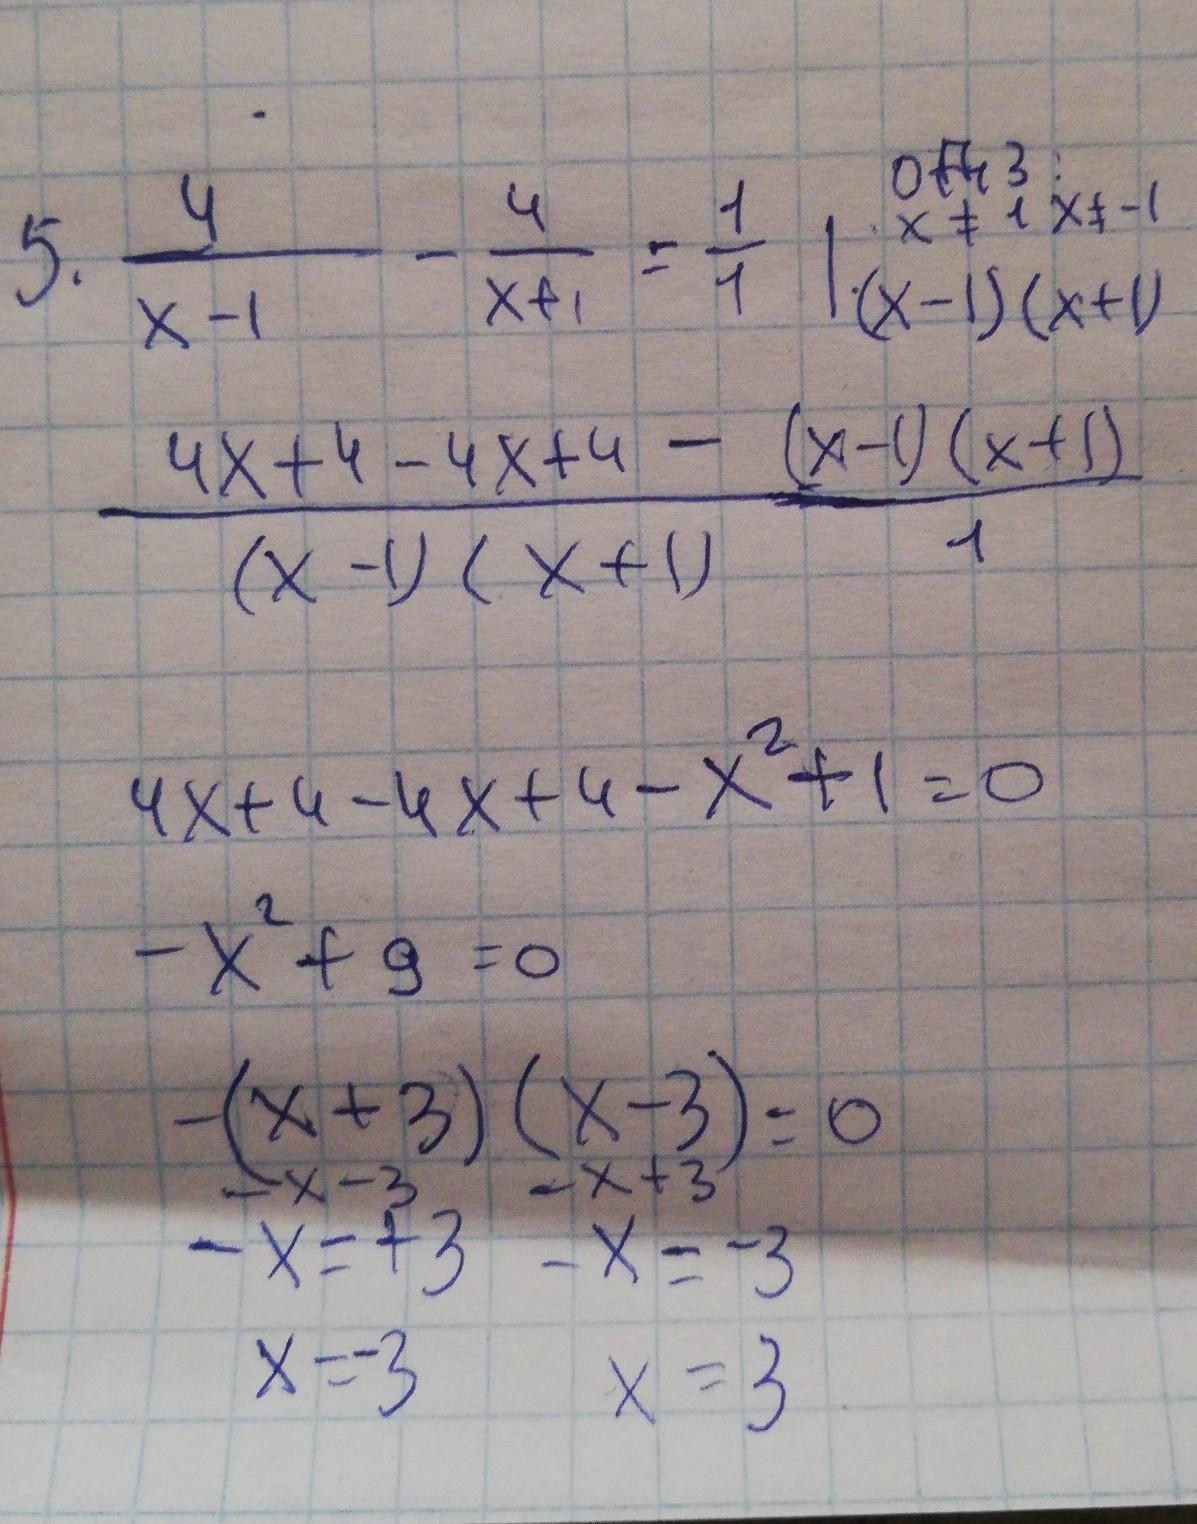 5. 4/(x-1) - 4/(x+1) = 1/1 | · (x-1)(x+1)
ОДЗ:
x ≠ 1 x ≠ -1
4x+4-4x+4 - (x-1)(x+1)
(x-1)(x+1) 1
4x+4-4x+4-x²+1=0
-x²+9=0
-(x+3)(x-3)=0
-x-3 -x+3
-x=+3 -x=-3
x=-3 x=3